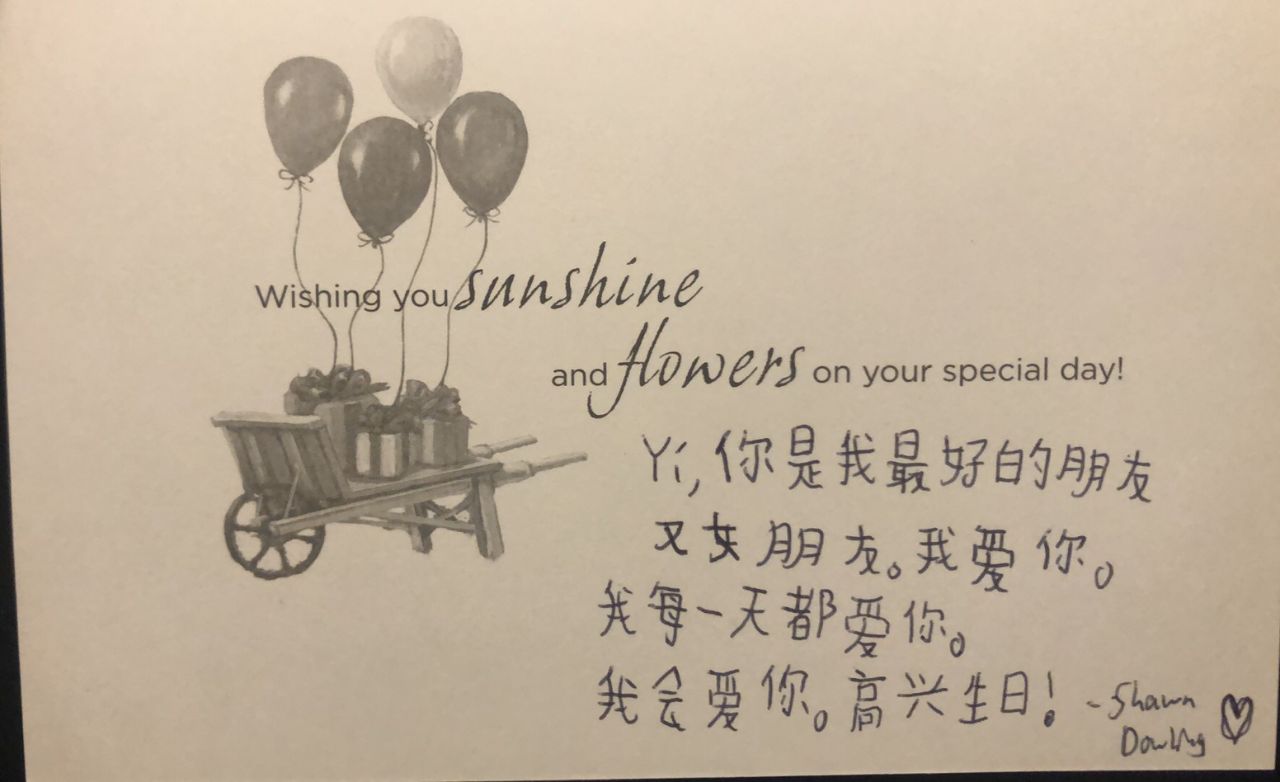 Wishing you sunshine
and flowers on your special day!
Yi, 你是我最好的朋友
又女朋友。我爱你。
我每一天都爱你。
我会爱你。高兴生日! - Shawn
Dowling